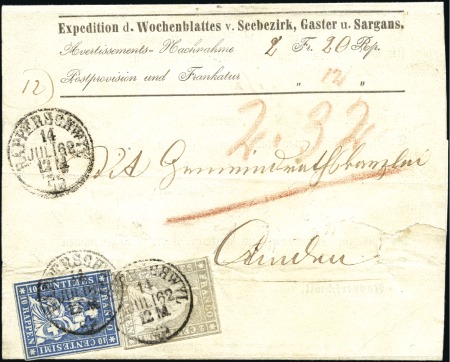 Expedition d. Wochenblattes v. Seebezirk, Gaster u. Sargans.
Avertissements-Nachnahme 2 Fr. 20 Rp.
Postprovision und Frankatur " 12 "
12)
2.32
RAPPERSCHWYL
14
JULI 62
Gemeindrathskanzlei
Amden
RAPPERSCHWYL
14
JULI 62
14
JULI 62
10 CENTESIMI
10 RAPPEN
FRANCO